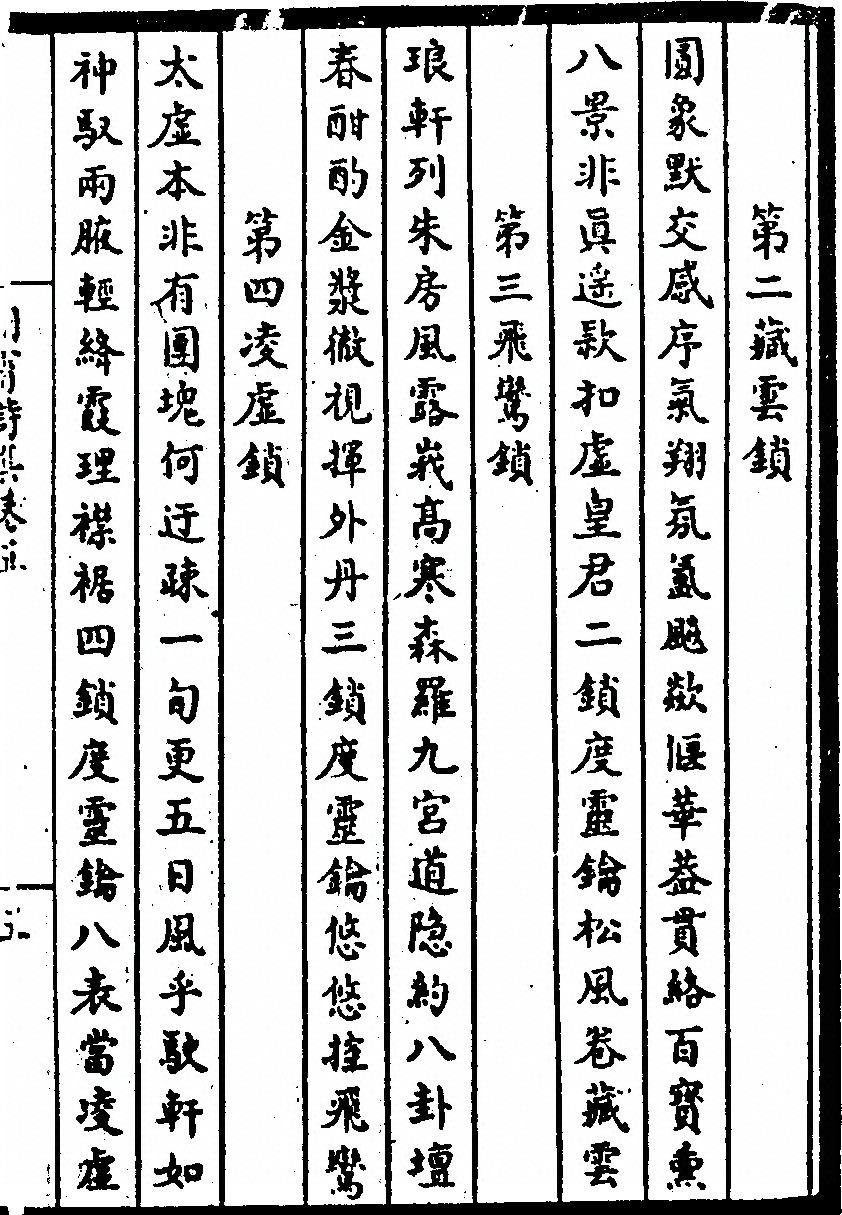 第二藏雲鎖
圓象默交感序氣翔氛氳颷歘偃華葢貫絡百寶熏
八景非眞遥款扣虛皇君二鎖度靈鑰松風卷藏雲
第三飛鸞鎖
琅軒列朱房風露峩髙寒森羅九宮道隐約八卦壇
春酣酌金漿微視揮外丹三鎖度靈鑰悠悠挂飛鸞
第四凌虛鎖
太虛本非有團塊何迂疎一句更五日風乎馭軒如
神馭兩腋輕絳霞理襟裾四鎖度靈鑰八表當凌虛
詩集卷五
五